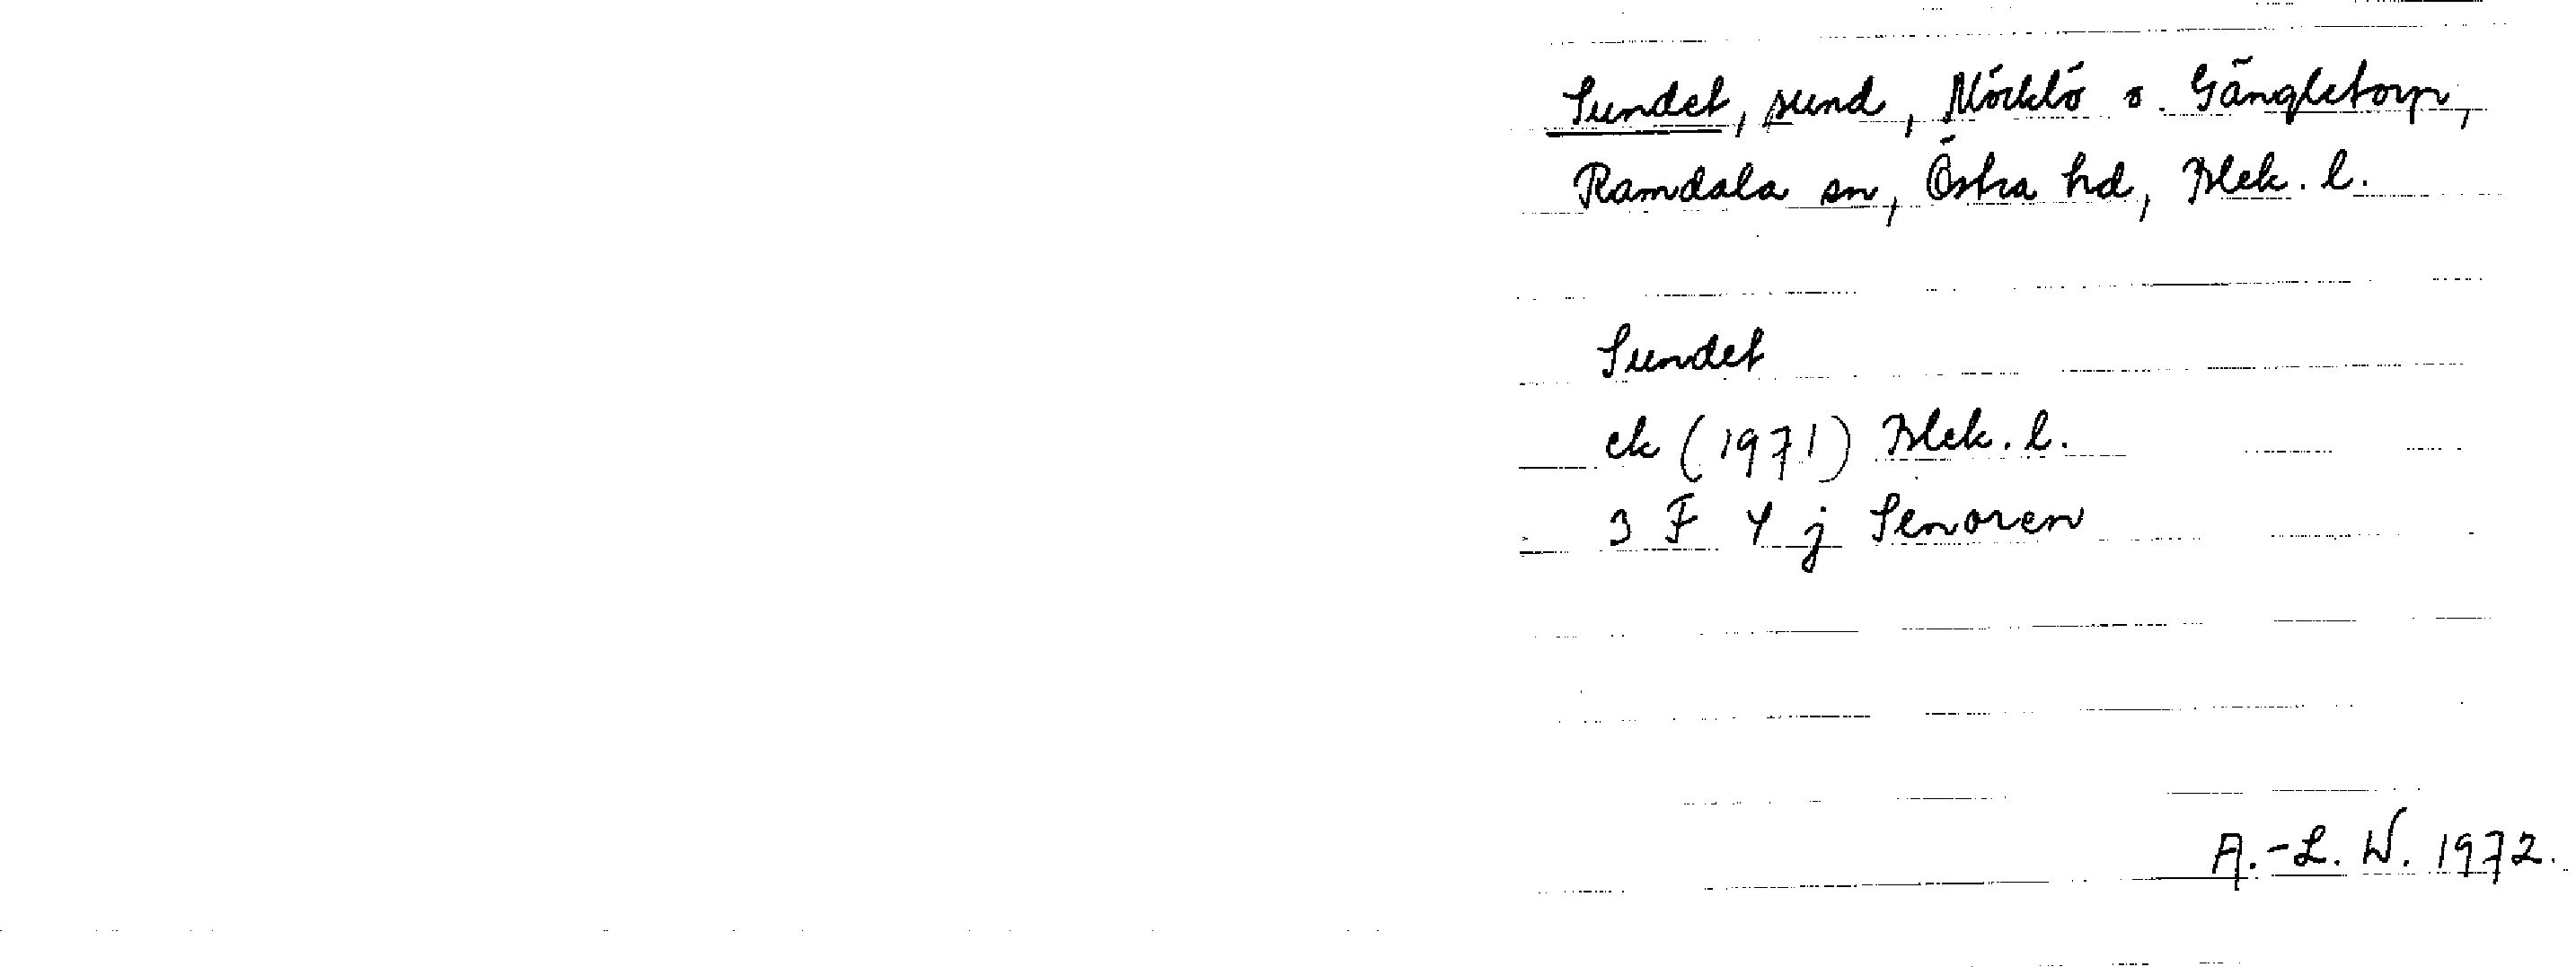 Sundet, sund, Möcklö o. Gängletorp,
Ramdala sn, Östra hd, Blek. l.
Sundet
ek (1971) Blek. l.
3 F 4 j Senoren
A.-L. W. 1972.